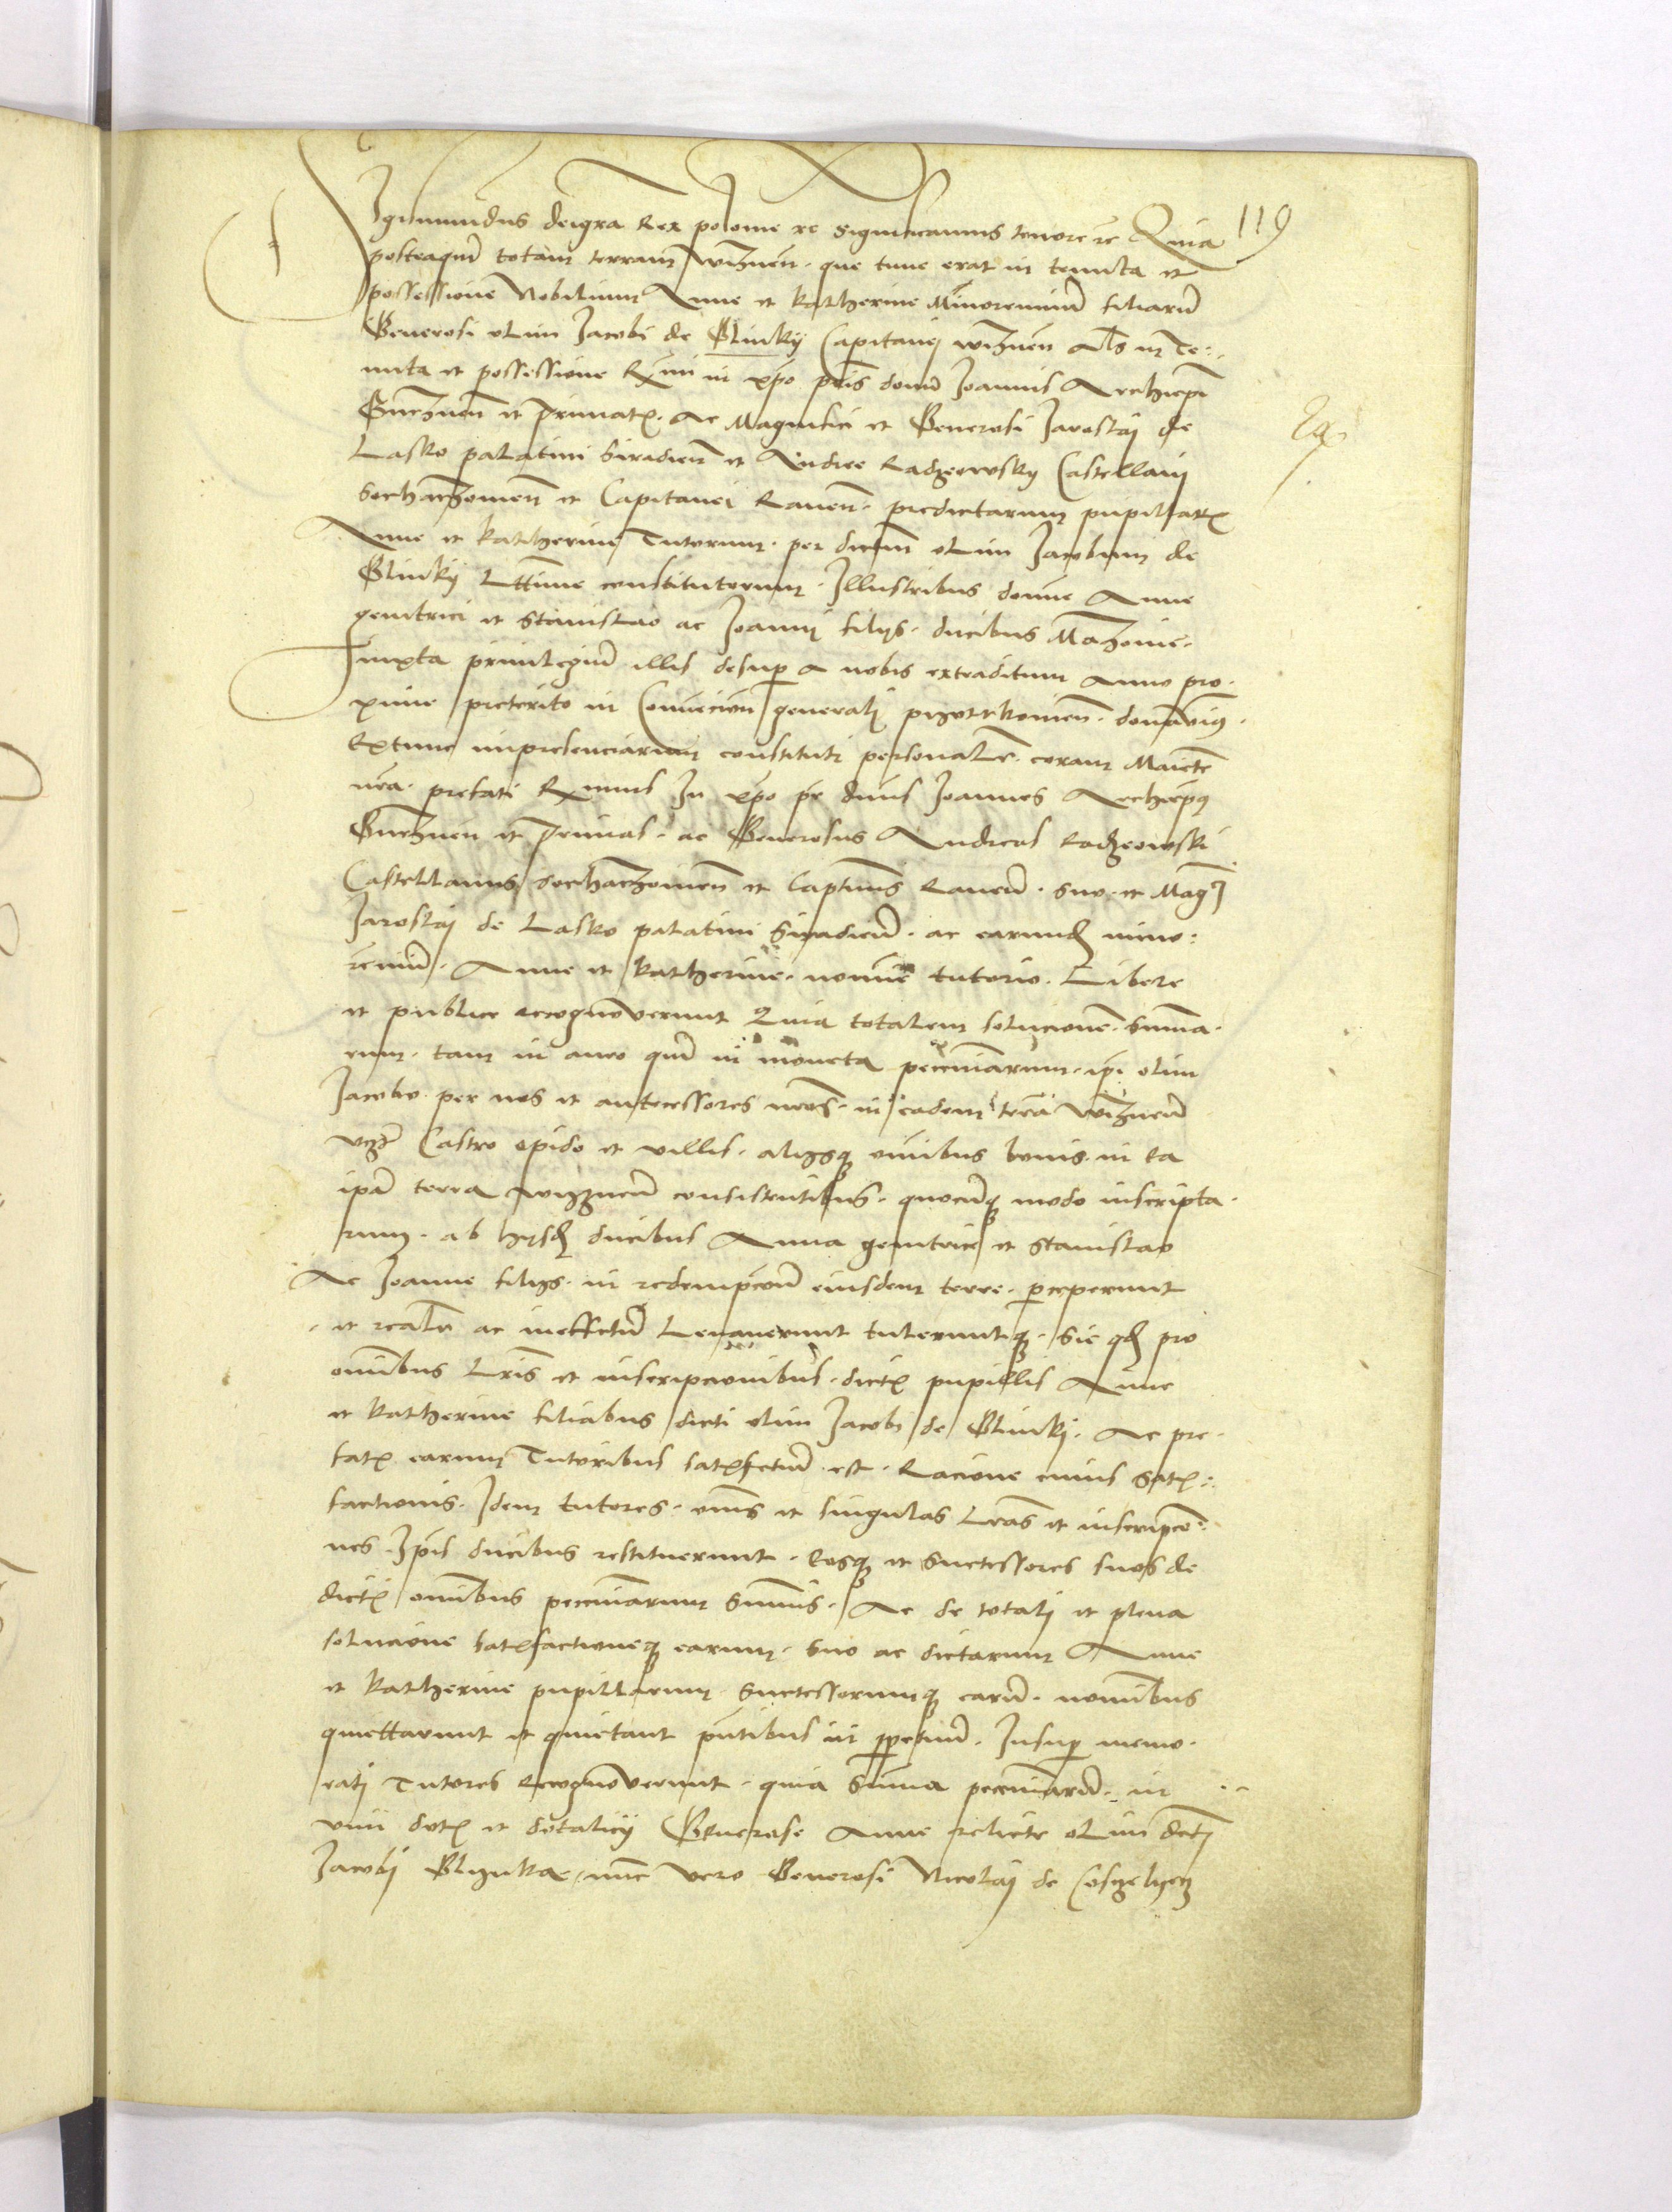 119
Sigismundus dei gra Rex polonie rc significamus tenore rc Quia
posteaqm̃ totam terram wiznen̄. que tunc erat in tenuta et
possessione Nobilium Anne et katherine Minorennium filiarum
Generosi olim Jacobi de Glinkij Capitanei wiznen̄ Als in Te=
nuta et possessione Rmi in xpo pris domi Joannis Archiepi
Gneznen̄ et Primatis. Ac Magnifici et Generosi Jaroslai de
Lasko palatini Siradien̄ et Andree Radzeowsky Castellani
sochaczowien̄ et Capitanei Rawen̄. predictarum pupillarum
Anne et katherine Tutorum. per dictum olim Jacobum de
Glinkij Lttime constitutorum. Illustribus domine Anne
genitrici et Stanislao ac Joanni filijs. ducibus Mazouie.
Juxta priuilegium illis desuper a nobis extraditum Anno pro-
xime preterito in Conuecion̄ generali pyotrkouien̄. donauimus.
Extunc inpresenciarum constituti personaliter. coram Maiestate
nra. prefati Rmus In xpo pr dnus Joannes Archiepus
Gneznen̄ et Primas. ac Generosus Andreas Radzeowski
Castellanus sochaczouien̄ et Captnus Rauen̄. suo. et Magci
Jaroslai de Lasko palatini Siradien̄. ac earundem mino=
rennium. Anne et katherine. nomine tutorio. Libere
et publice recognouerunt Quia totalem solucionem. summa-
rum. tam in auro qm̃ in moneta pecuniarum. ipi olim
Jacobo per nos et antecessores nros. in eadem terra wiznen̄
vcz Castro opido et villis. alijsque omibus bonis. in ea
ipa terra wizznen̄ consistentibus. quocumque modo inscripta-
rum. ab hijsdem ducibus Anna genitrice et Stanislao
Ac Joanne filijs. in redempcionem eiusdem terre. perceperunt
et realiter ac in effectum Leuauerunt tuleruntque. Sic qd pro
omibus Lris et inscripcionibus. dictis pupillis Anne
et katherine filiabus dicti olim Jacobi de Glinki. Ac pre-
fatis earum Tutoribus satisfactum est. Racione cuius satis=
factionis. Idem tutores. omes et singulas Lras et inscripcio=
nes Ipis ducibus restituerunt. Eosque et Successores suos de
dictis omibus pecuniarum summis. Ac de totali et plena
solucione satisfactioneque earum. suo ac dictarum Anne
et katherine pupillarum Successorumque earum. nominibus
quiettarunt et quietant pntibus in perpetuum. Insuper memo-
rati Tutores Recognouerunt. quia Summa pecuniarum. in
vim dotis et dotalicij Generose Anne relicte olim dicti
Jacobi Glzinkae, nunc vero Generosi Nicolai de Cosczelyecz